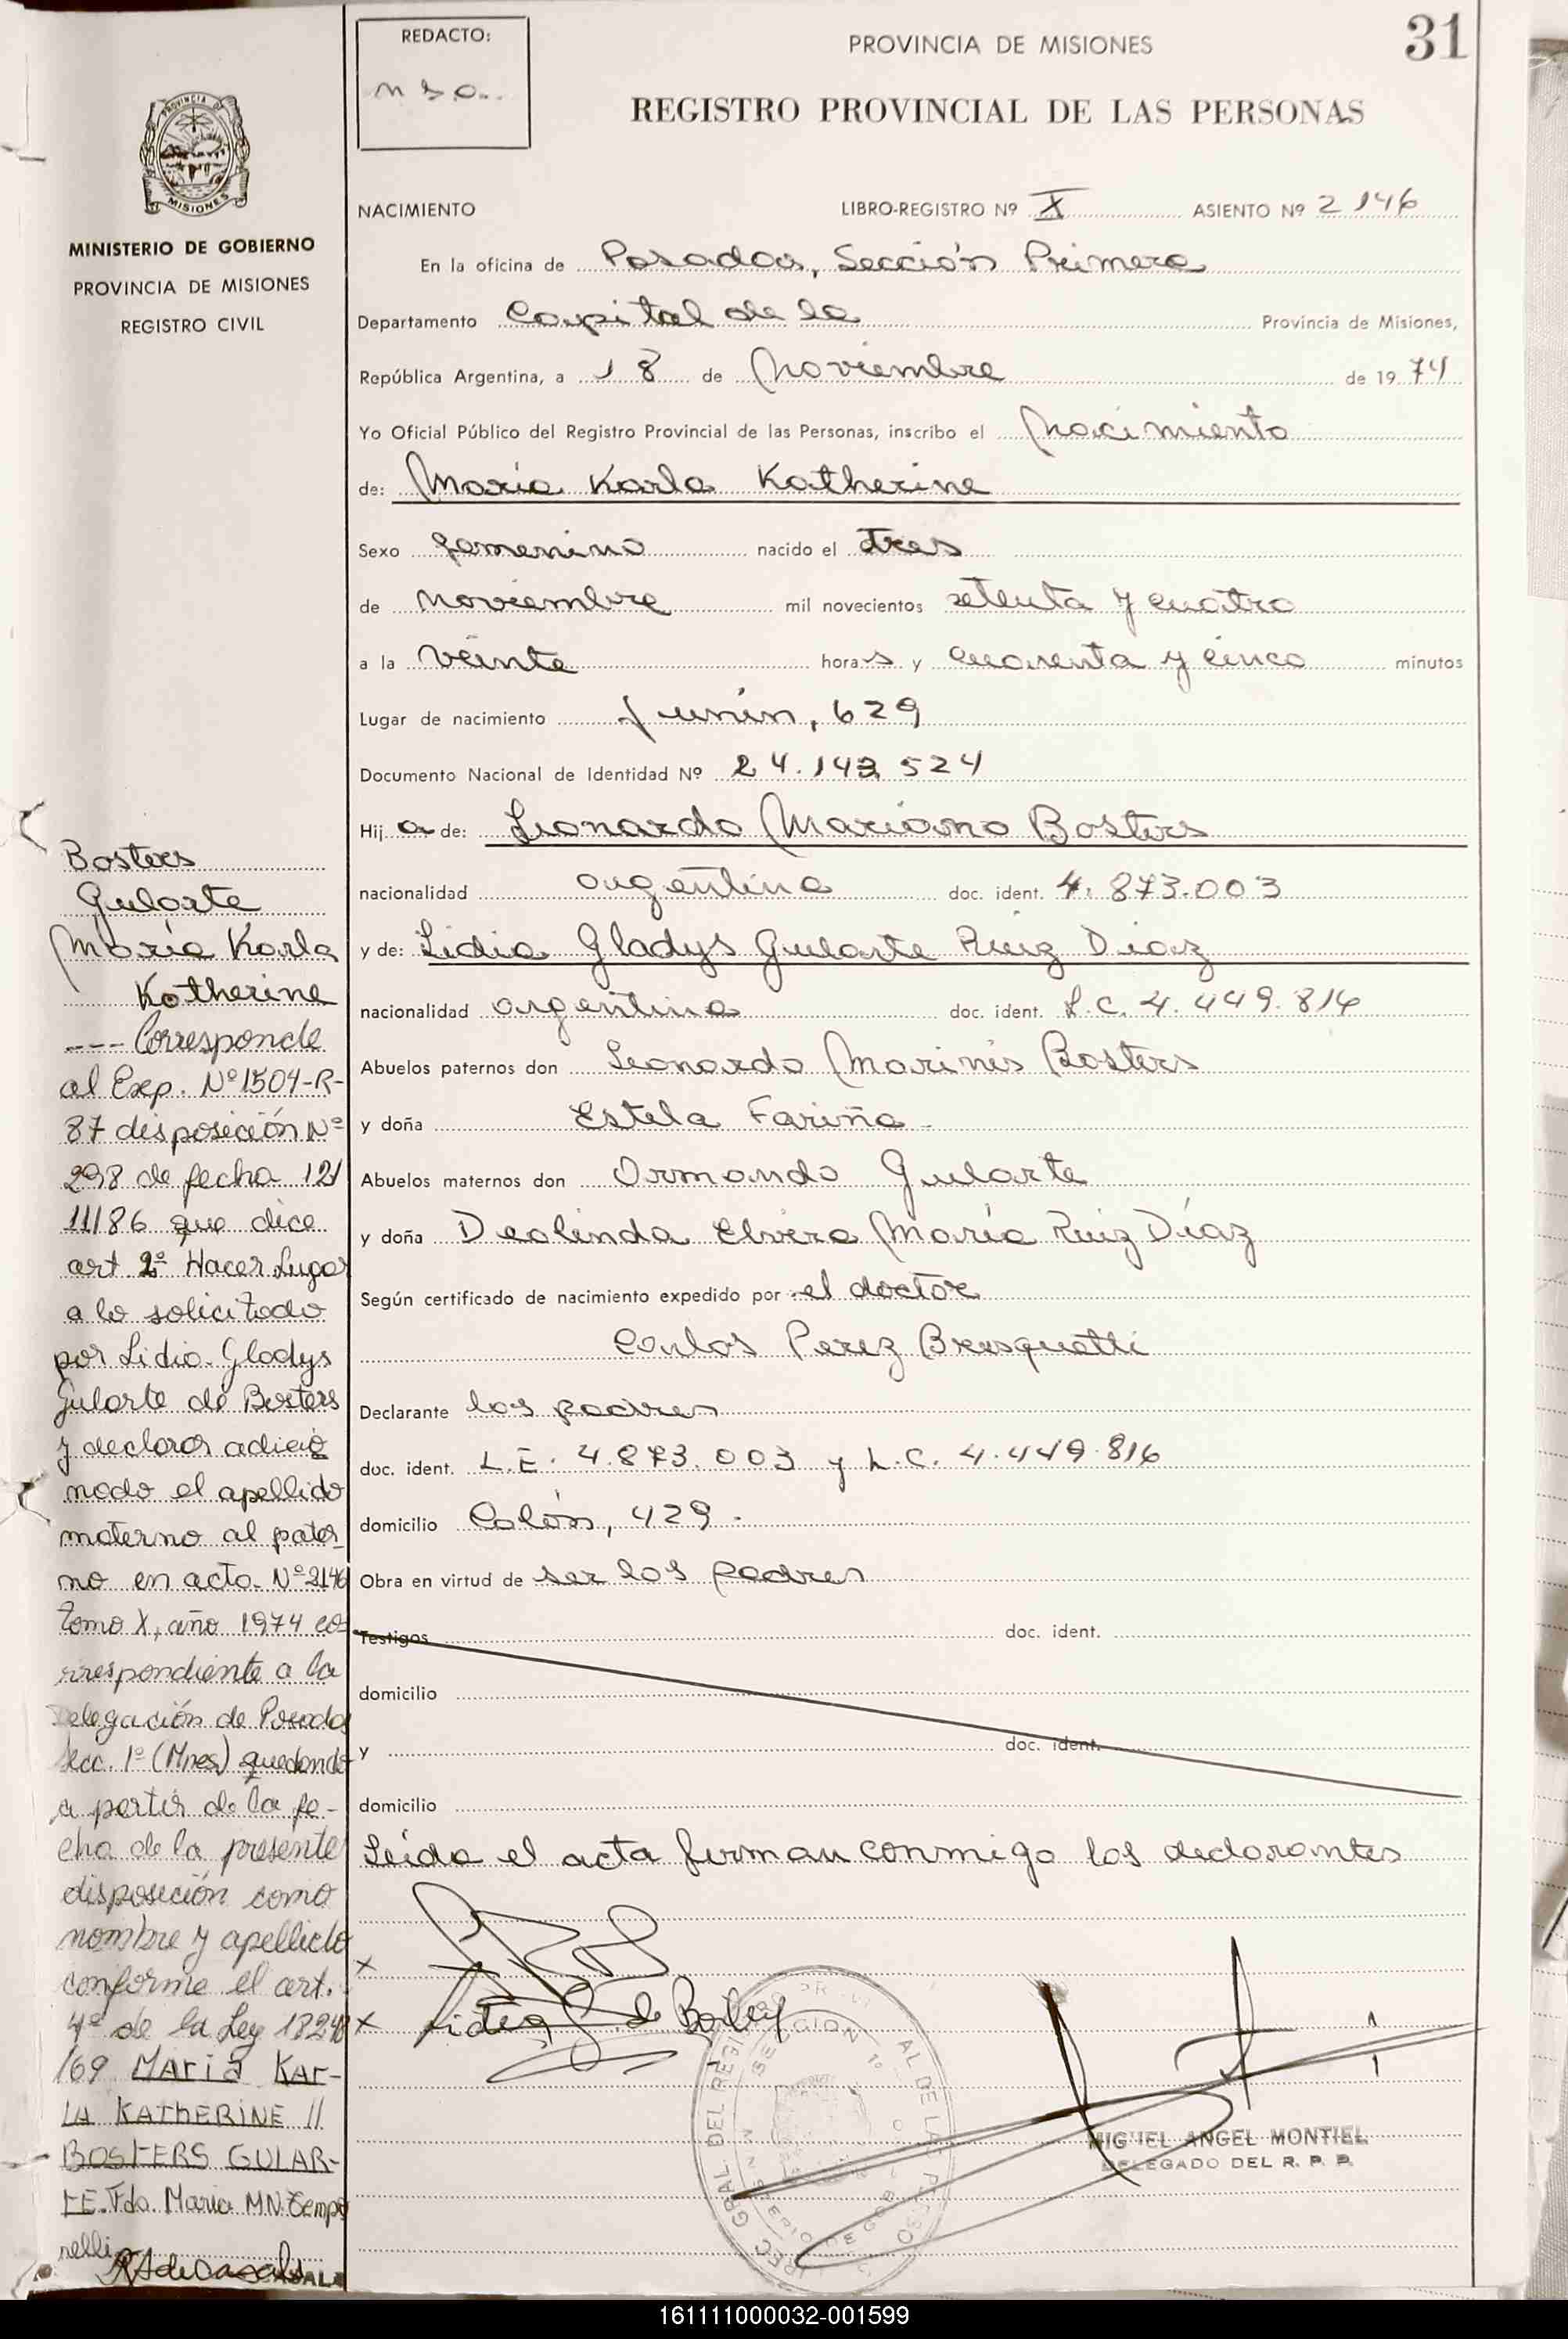 31
REDACTO:
PROVINCIA DE MISIONES
REGISTRO PROVINCIAL DE LAS PERSONAS
PROVINCIA DE
MISIONES
MINISTERIO DE GOBIERNO
PROVINCIA DE MISIONES
REGISTRO CIVIL
NACIMIENTO LIBRO-REGISTRO Nº X ASIENTO Nº 2146
En la oficina de Posadas, Sección Primera
Departamento Capital de la Provincia de Misiones,
República Argentina, a 18 de Noviembre de 1974
Yo Oficial Público del Registro Provincial de las Personas, inscribo el Nacimiento
de: María Karla Katherine
Sexo femenino nacido el tres
de Noviembre mil novecientos setenta y cuatro
a la veinte horas y cuarenta y cinco minutos
Lugar de nacimiento Junín, 629
Documento Nacional de Identidad Nº 24.143.524
Hija de: Leonardo Mariano Bosters
nacionalidad argentina doc. ident. 4.873.003
y de: Lidia Gladys Gularte Ruiz Diaz
nacionalidad argentina doc. ident. L.C. 4.449.816
Abuelos paternos don Leonardo Marinis Bosters
y doña Estela Fariña
Abuelos maternos don Ormando Gularte
y doña Deolinda Elvira María Ruiz Díaz
Según certificado de nacimiento expedido por el doctor
Carlos Perez Brusquetti
Declarante los padres
doc. ident. L.E. 4.873.003 y L.C. 4.449.816
domicilio Colón, 429.
Obra en virtud de ser los padres
Testigos doc. ident.
domicilio
y doc. ident.
domicilio
Leída el acta firman conmigo los declarantes
x
x Lidia G. de Bosters
MIGUEL ANGEL MONTIEL
DELEGADO DEL R. P. P.
Bosters
Gularte
María Karla
Katherine
--- Corresponde
al Exp. Nº 1504-R-
87 disposición Nº
298 de fecha 12/
11/86 que dice
art 2º Hacer Lugar
a lo solicitado
por Lidia Gladys
Gularte de Bosters
y declarar adicio
nado el apellido
materno al pater-
no en acta Nº 2146
tomo X, año 1974 co-
rrespondiente a la
Delegación de Posadas
Secc. 1º (Mnes) quedando
a partir de la fe-
cha de la presente
disposición como
nombre y apellido
conforme el art.
4º de la Ley 18248
/69 MARIA KAR-
LA KATHERINE //
BOSTERS GULAR-
TE. Fdo. Maria MN. Tempo
relli
161111000032-001599